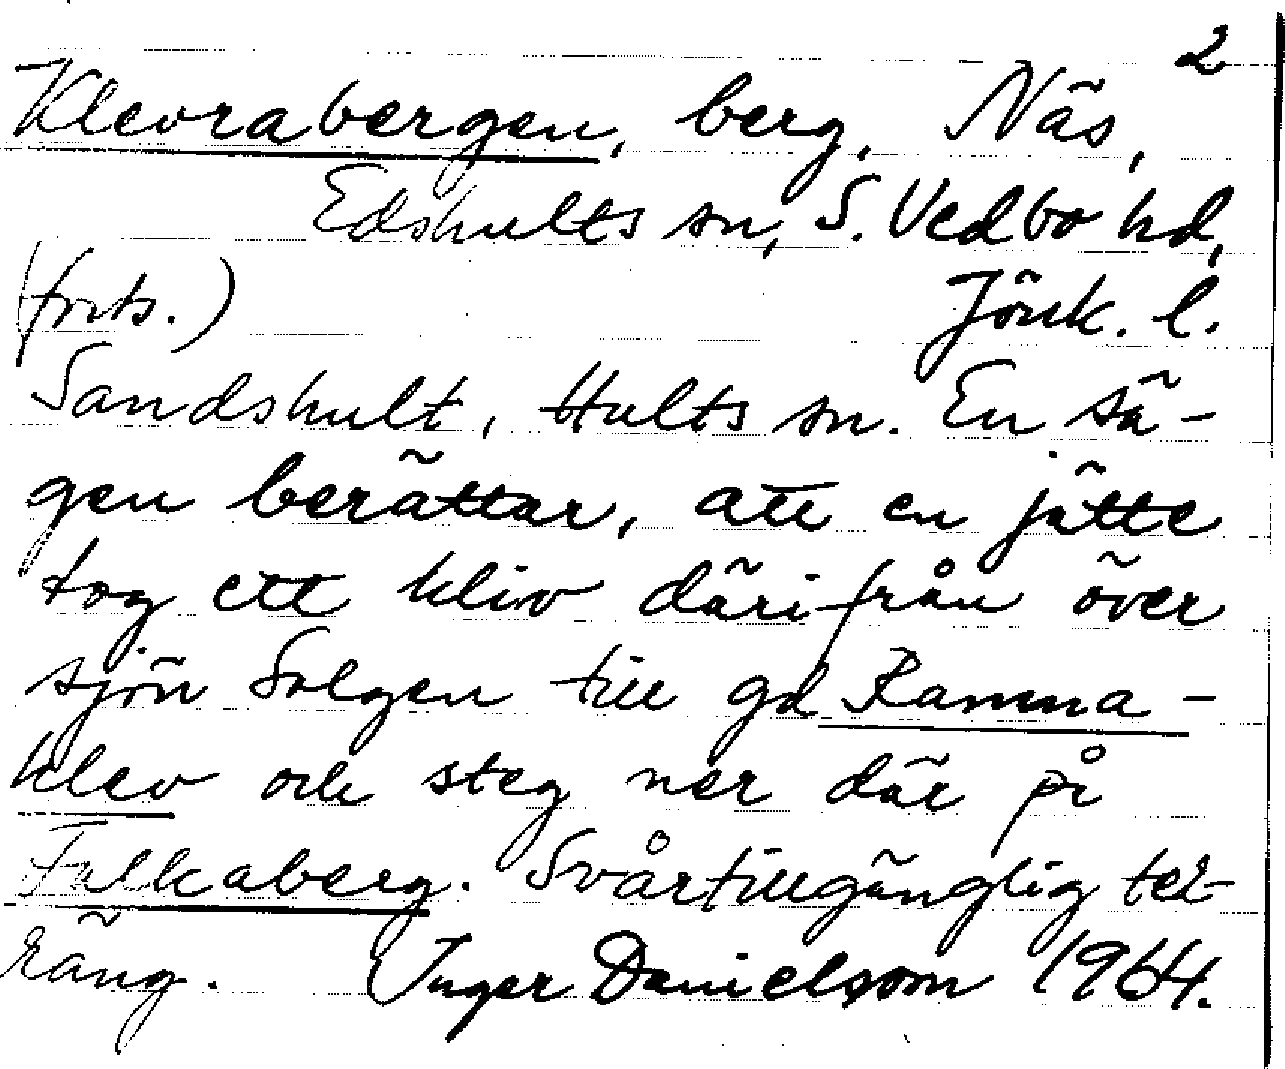 2
Klevrabergen, berg, Näs,
Edshults sn, S. Vedbo hd,
(forts.) Jönk. l.
Sandshult, Hults sn. En sä-
gen berättar, att en jätte
tog ett kliv därifrån över
sjön Solgen till gd Ramna-
klev och steg ner där på
Falkaberg. Svårtillgänglig ter-
räng. Inger Danielsson 1964.